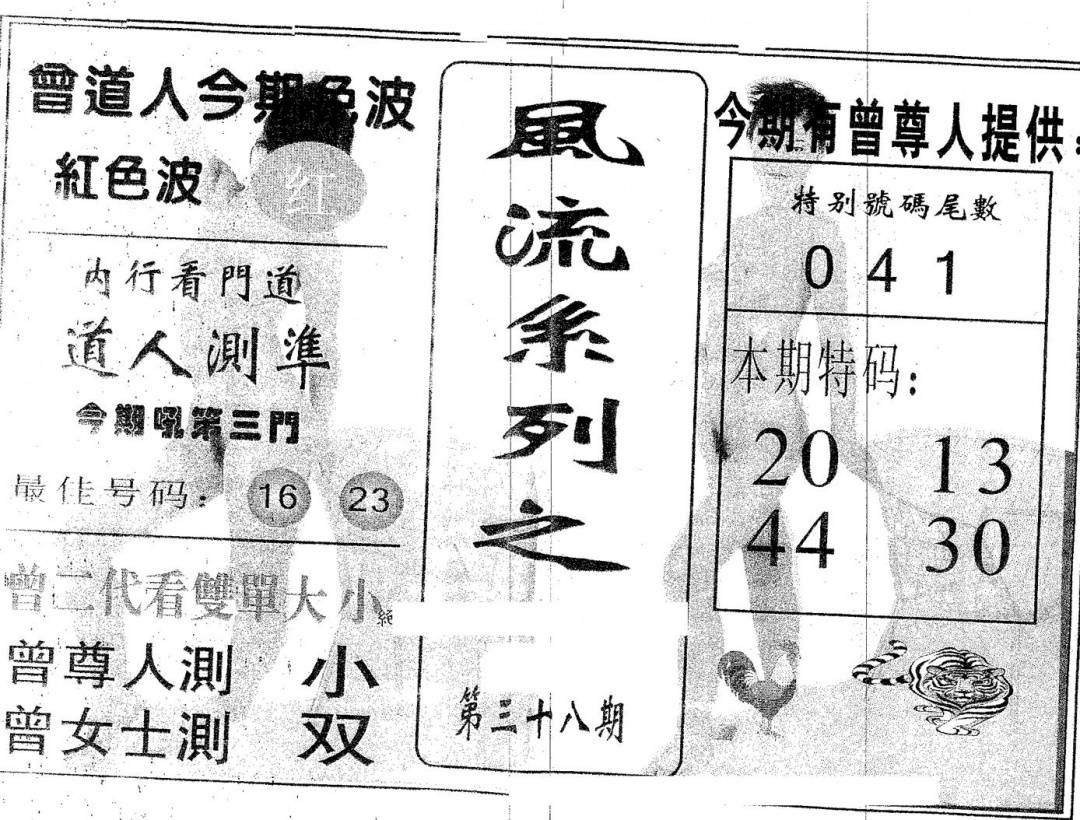 曾道人今期色波
紅色波
红
内行看門道
道人測準
今期吼第三門
最佳号码：
16
23
曾二代看雙單大小
曾尊人測 小
曾女士測 双
風流系列之
第三十八期
今期有曾尊人提供：
特别號碼尾數
0 4 1
本期特码：
20 13
44 30